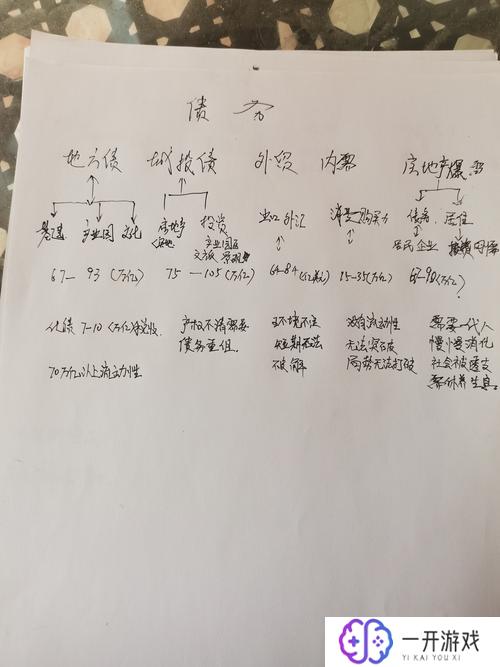 债务
地方债 城投债 外贸 内需 房地产爆雷
基建 产业园 文化 房地产 投资 出口外汇 消费 购买力 债务 居住
产业园区 居民 企业
交旅
67— 93(万亿) 75 —105(万亿) 64-84(亿美元) 15-35(万亿) 68-98(万亿)
化债 7-10(万亿)税收 产权不清需要 环境不定 没有流动性 需要一代人
债务重组. 短期无法 无法突破 慢慢消化
70万亿以上流动性 破解 局势无法打破 社会被透支
需休养生息
一开游戏
YI KAI YOU XI